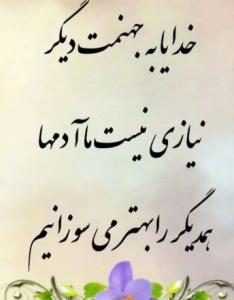 خدایا به جهنمت دیگر
نیازی نیست ما آدمها
همدیگر را بهتر می سوزانیم